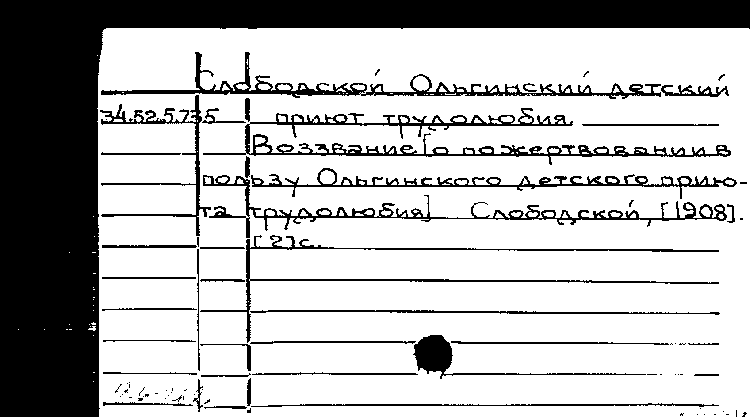 Слободской Ольгинский детский
34.52.5.735 приют трудолюбия.
Воззвание [о пожертвовании в
пользу Ольгинского детского прию-
та трудолюбия] Слободской, [1908].
[2] с.